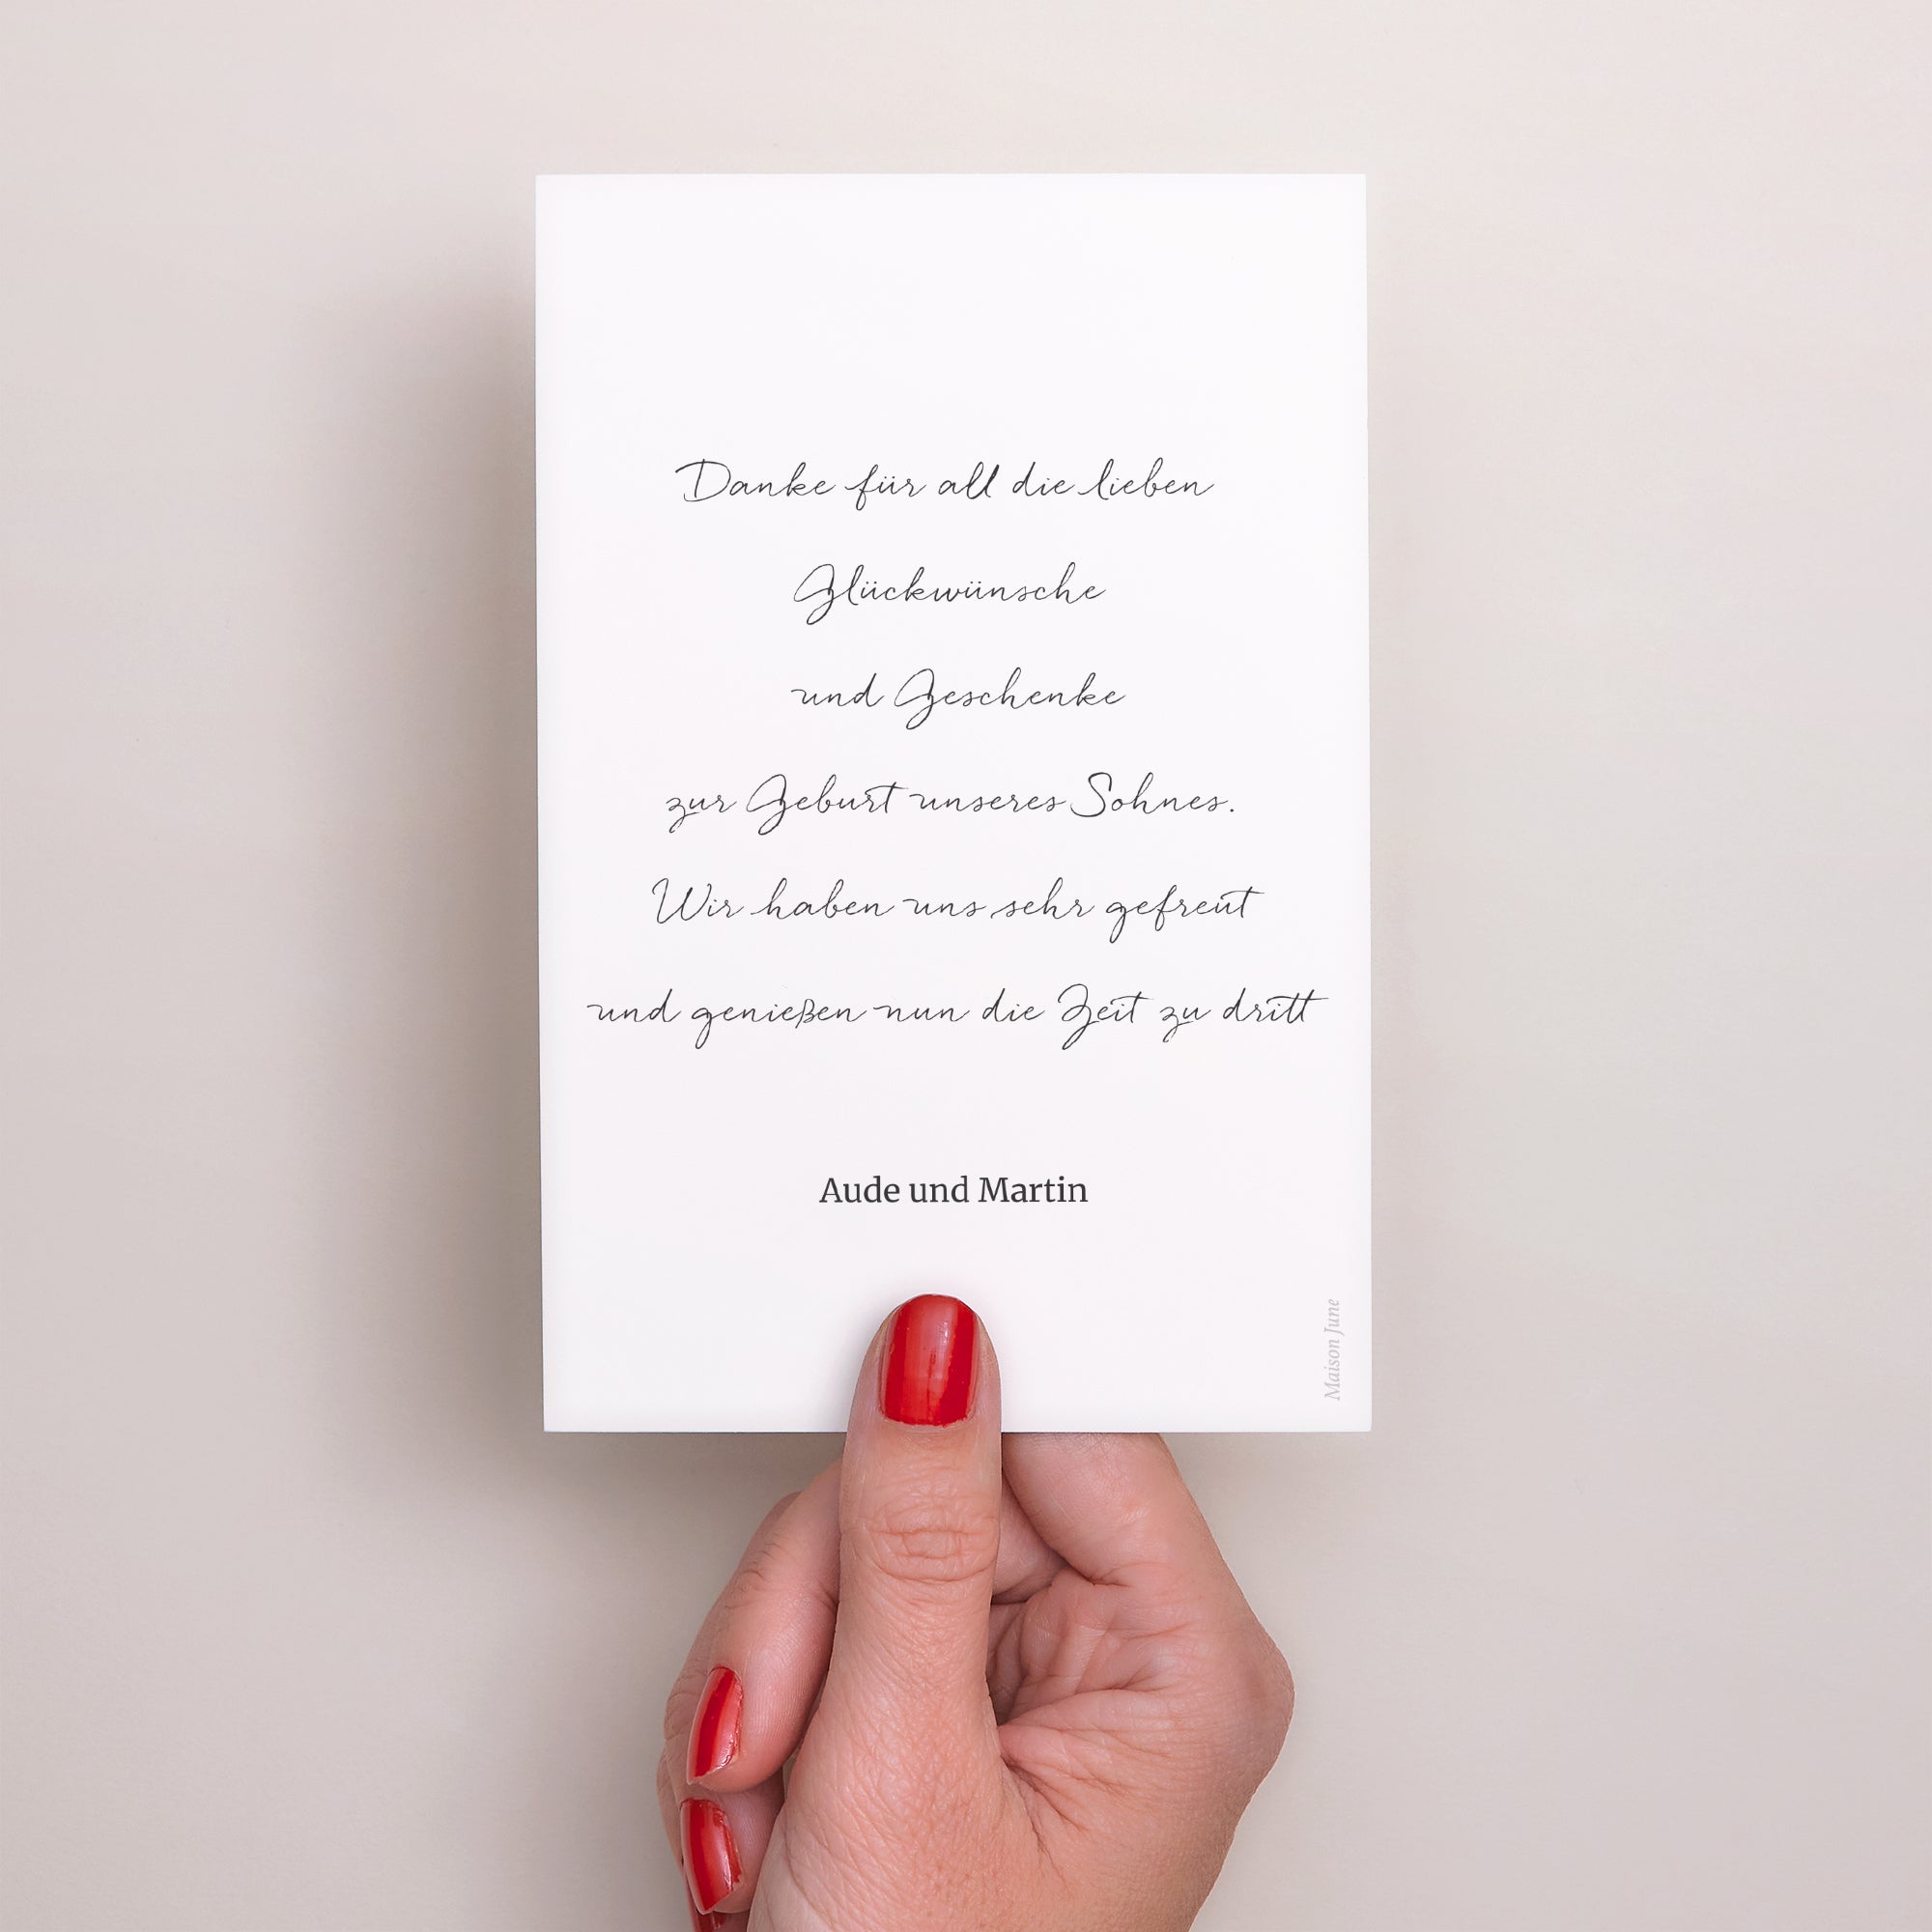 Danke für all die lieben
Glückwünsche
und Geschenke
zur Geburt unseres Sohnes.
Wir haben uns sehr gefreut
und genießen nun die Zeit zu dritt
Aude und Martin
Maison June